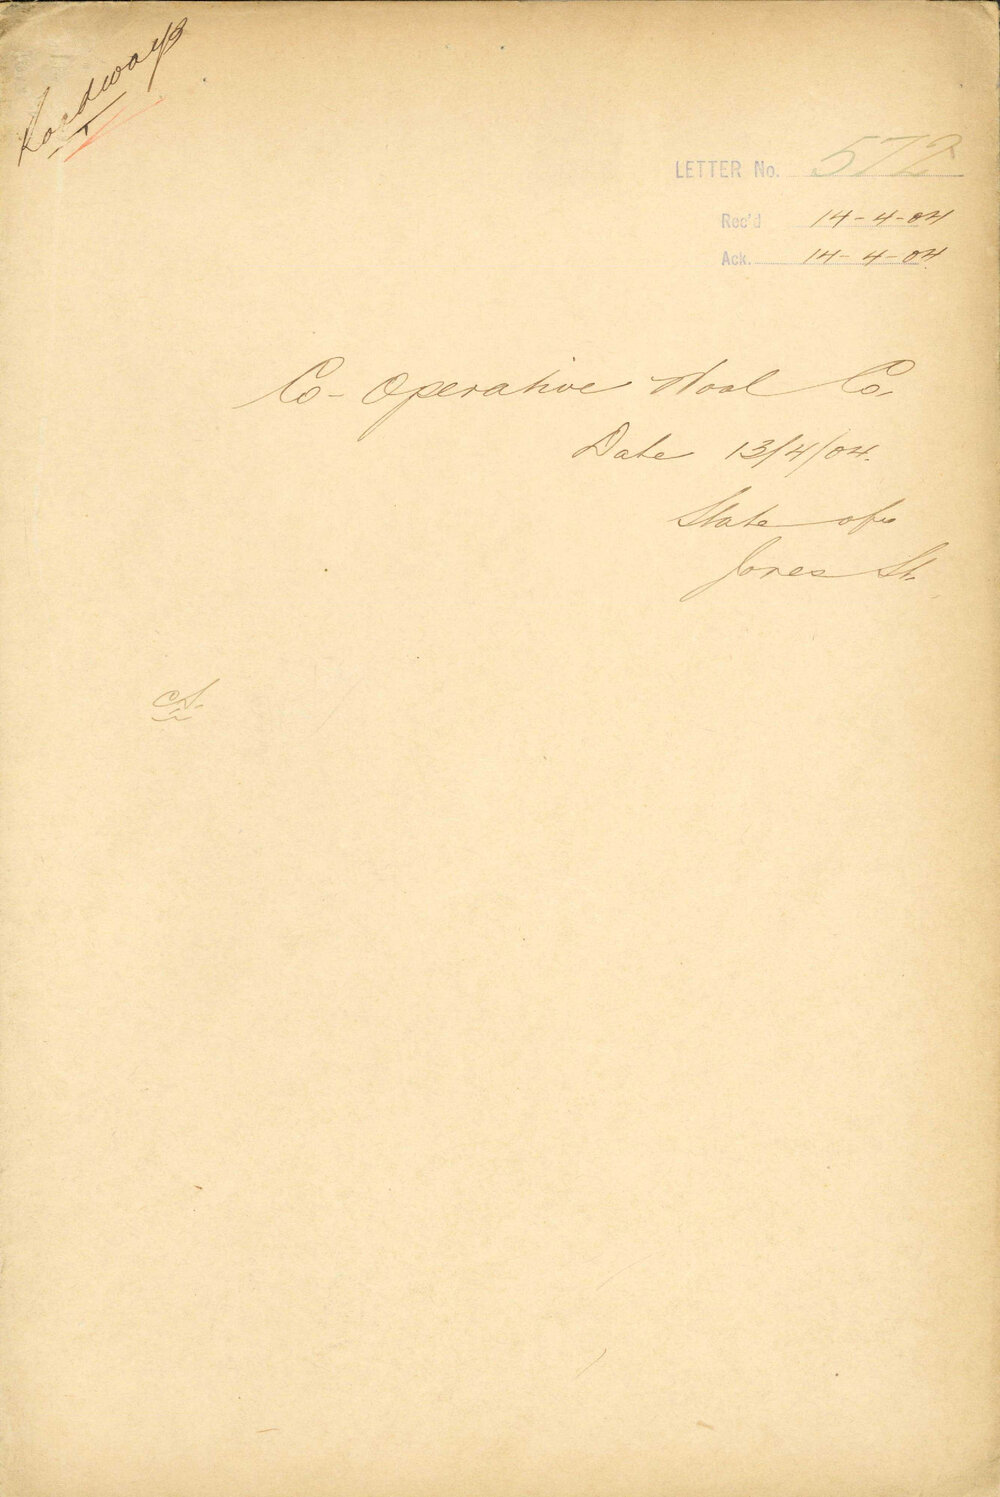 Roadways
LETTER No. 572
Rec'd 14-4-04
Ack. 14-4-04
Co-Operative Wool Co.
Date 13/4/04.
State of
Jones St.